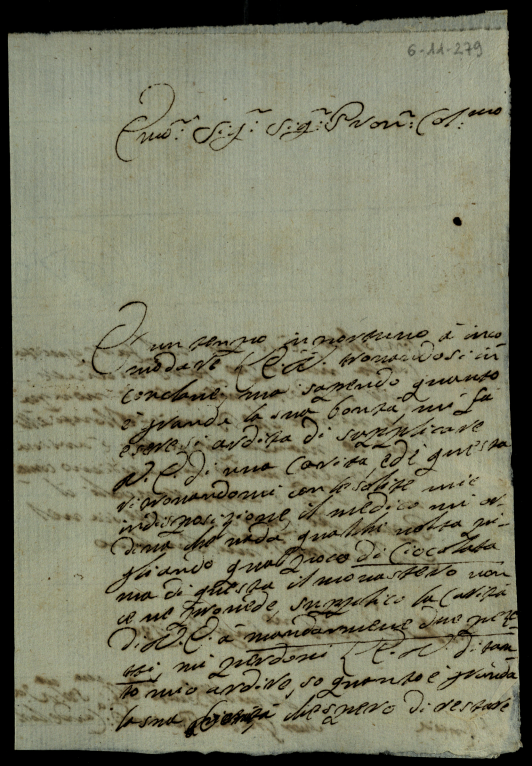 6-11-279
Emo: Sig: Sig: Pron: Col:mo
È un tempo inportuno à inco
modare V. E. trovandosi in
conclave ma sapendo quanto
è grande la sua bontà, mi fa
esere si ardita di supplicare
V. E. di una carità ed è questa
ritrovandomi con le solite mie
indisposizione, il medico mi or
dina che vada qualche volta pi
gliando qualpoco di Ciocolata
ma di questa il monastero non
ce ne provede, supplico la Carità
di V. E. à mandarmene due pez
zi, mi perdoni V. E. di tan
to mio ardire, so quanto è grande
la sua bontà che spero di restare